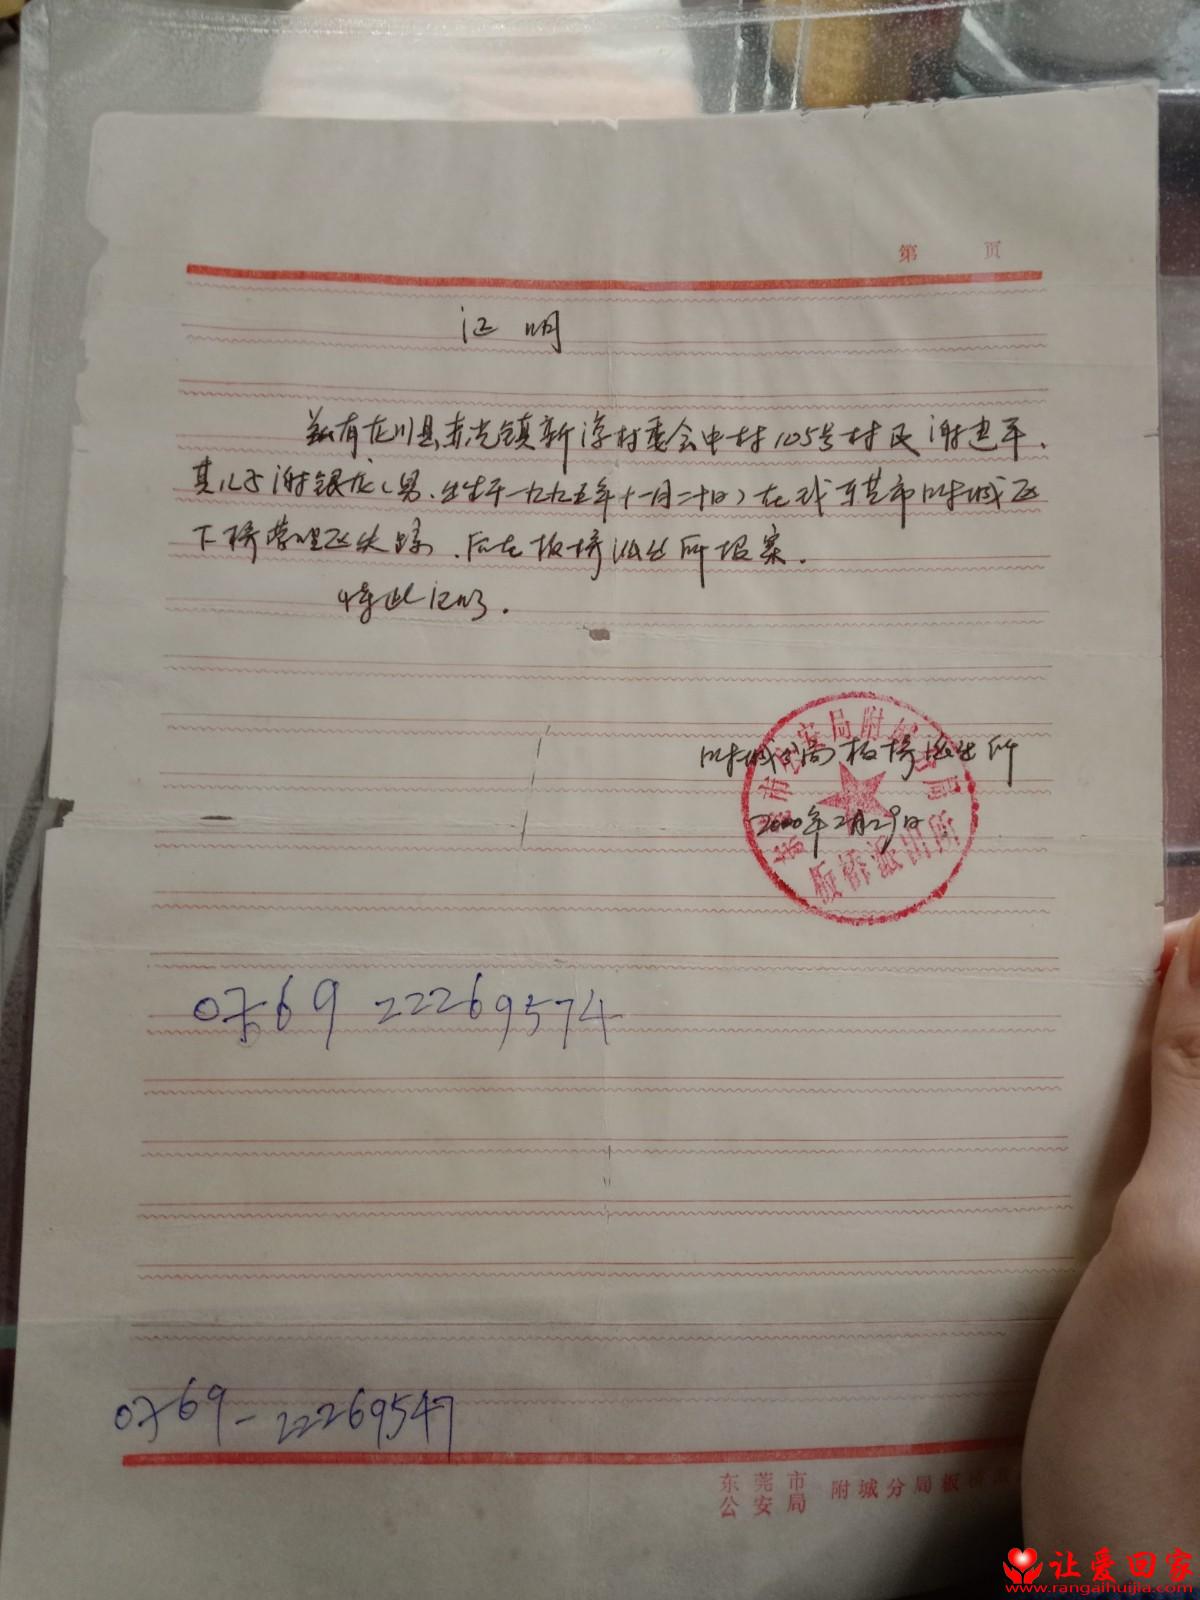 第 页
证 明
兹有龙川县赤光镇新淳村委会中村105号村民谢建平,
其儿子谢银龙(男.出生于一九九五年十一月二十日)在我东莞市附城区
下桥管理区失踪.后在板桥派出所报案.
特此证明.
附城分局板桥派出所
2000年2月29日
东莞市公安局附城分局
板桥派出所
0769 22269574
0769-22269547
东莞市
公安局 附城分局板桥
让爱回家
www.rangaihuijia.com